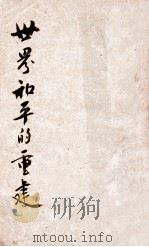 世界和平的重建
研狗
mtoou.info